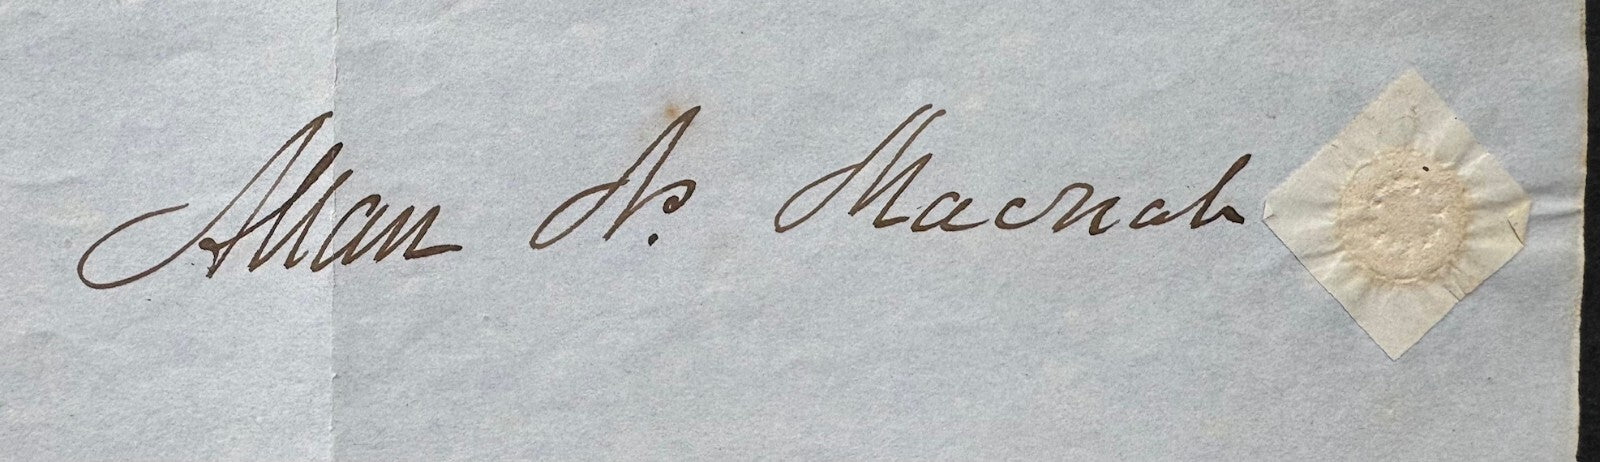 Allan N. Macnab